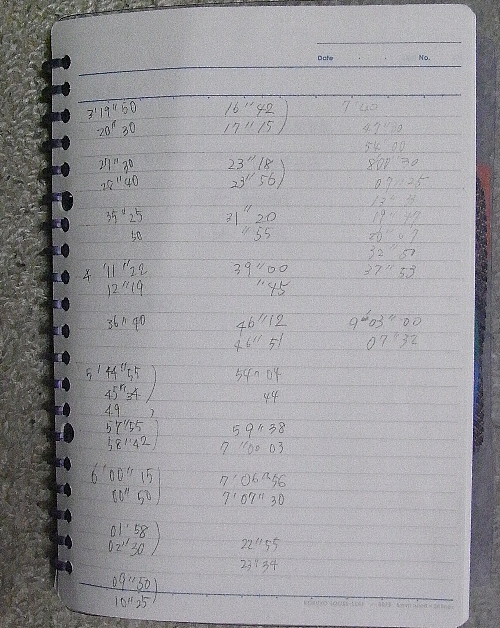 Date . . No.
3'19"50
20"30
27"30
28"40
35"25
50
4 '11"22
12"19
36"40
5'44"55
45"34
49
57"55
58"42
6'00"15
00"50
01"58
02"30
09"50
10"25
16"42
17"15
23"18
23"56
31"20
"55
39"00
"45
46"12
46"51
54"04
44
59"38
7 "00 03
7'06"56
7'07"30
22"55
23"34
7'40
54 00
07"25
32"51
37"53
9°03"00
07"32